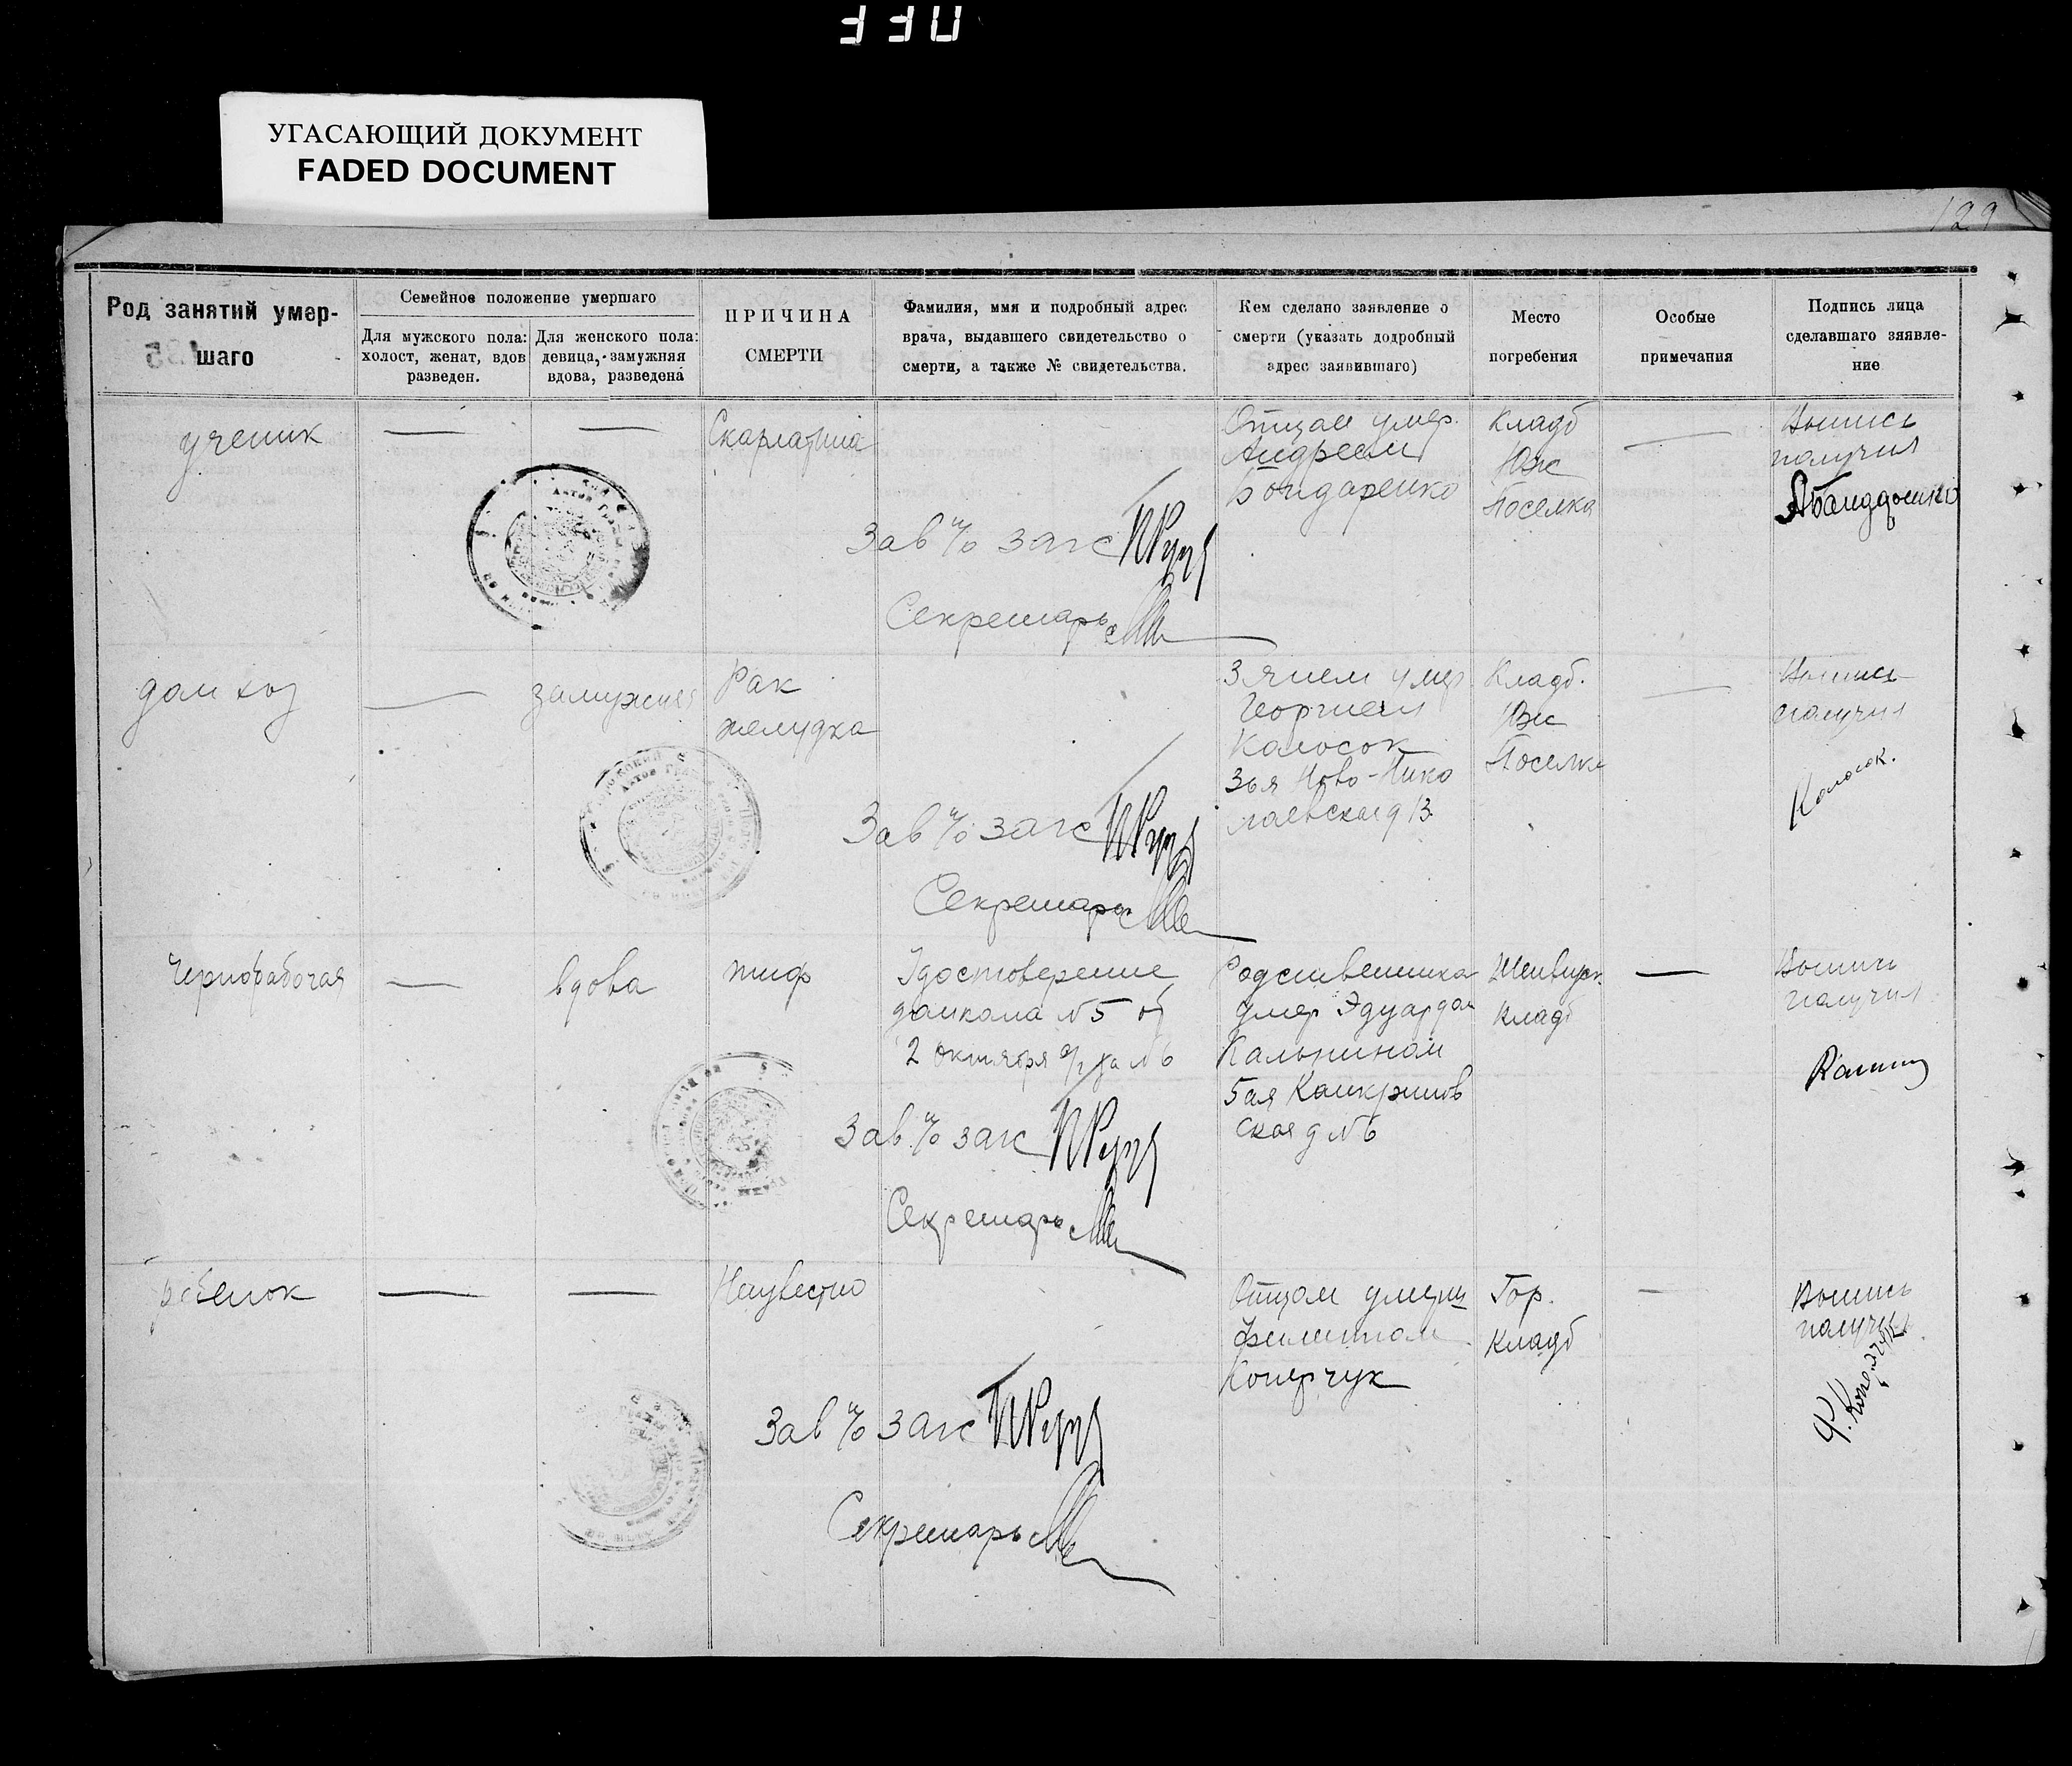 УГАСАЮЩИЙ ДОКУМЕНТ
FADED DOCUMENT
129
Род занятий умер-
шаго
Семейное положение умершаго
Для мужского пола:
холост, женат, вдов
разведен.
Для женского пола:
девица, замужняя
вдова, разведена
ПРИЧИНА
СМЕРТИ
Фамилия, имя и подробный адрес
врача, выдавшего свидетельство о
смерти, а также № свидетельства.
Кем сделано заявление о
смерти (указать додробный
адрес заявившаго)
Место
погребения
Особые
примечания
Подпись лица
сделавшаго зяявле-
ние
ученик
—
—
Скарлатина
Отцом умер.
Андреем
Бондаренко
Кладб
Юж
Поселка
—
Выпись
получил
Зав п/о загс
Секретарь
дом хоз
—
замужняя
Рак
желудка
Зятем умер
Георгием
Колосок
3ья Ново-Нико
лаевская д 13
Кладб.
Юж
Поселка
—
Выпись
получил
Колосок.
Зав п/о загс
Секретарь
Чернорабочая
—
вдова
тиф
Удостоверение
домкома №5 от
2 октября
Родственника
умер Эдуардом
Кальнином
5ая
ская д №6
Кладб
—
Выпись
получил
Зав п/о загс
Секретарь
ребенок
—
—
Неизвестно
Отцом умерш
Филиппом
Гор.
Кладб
—
Выпись
получил
Зав п/о загс
Секретарь